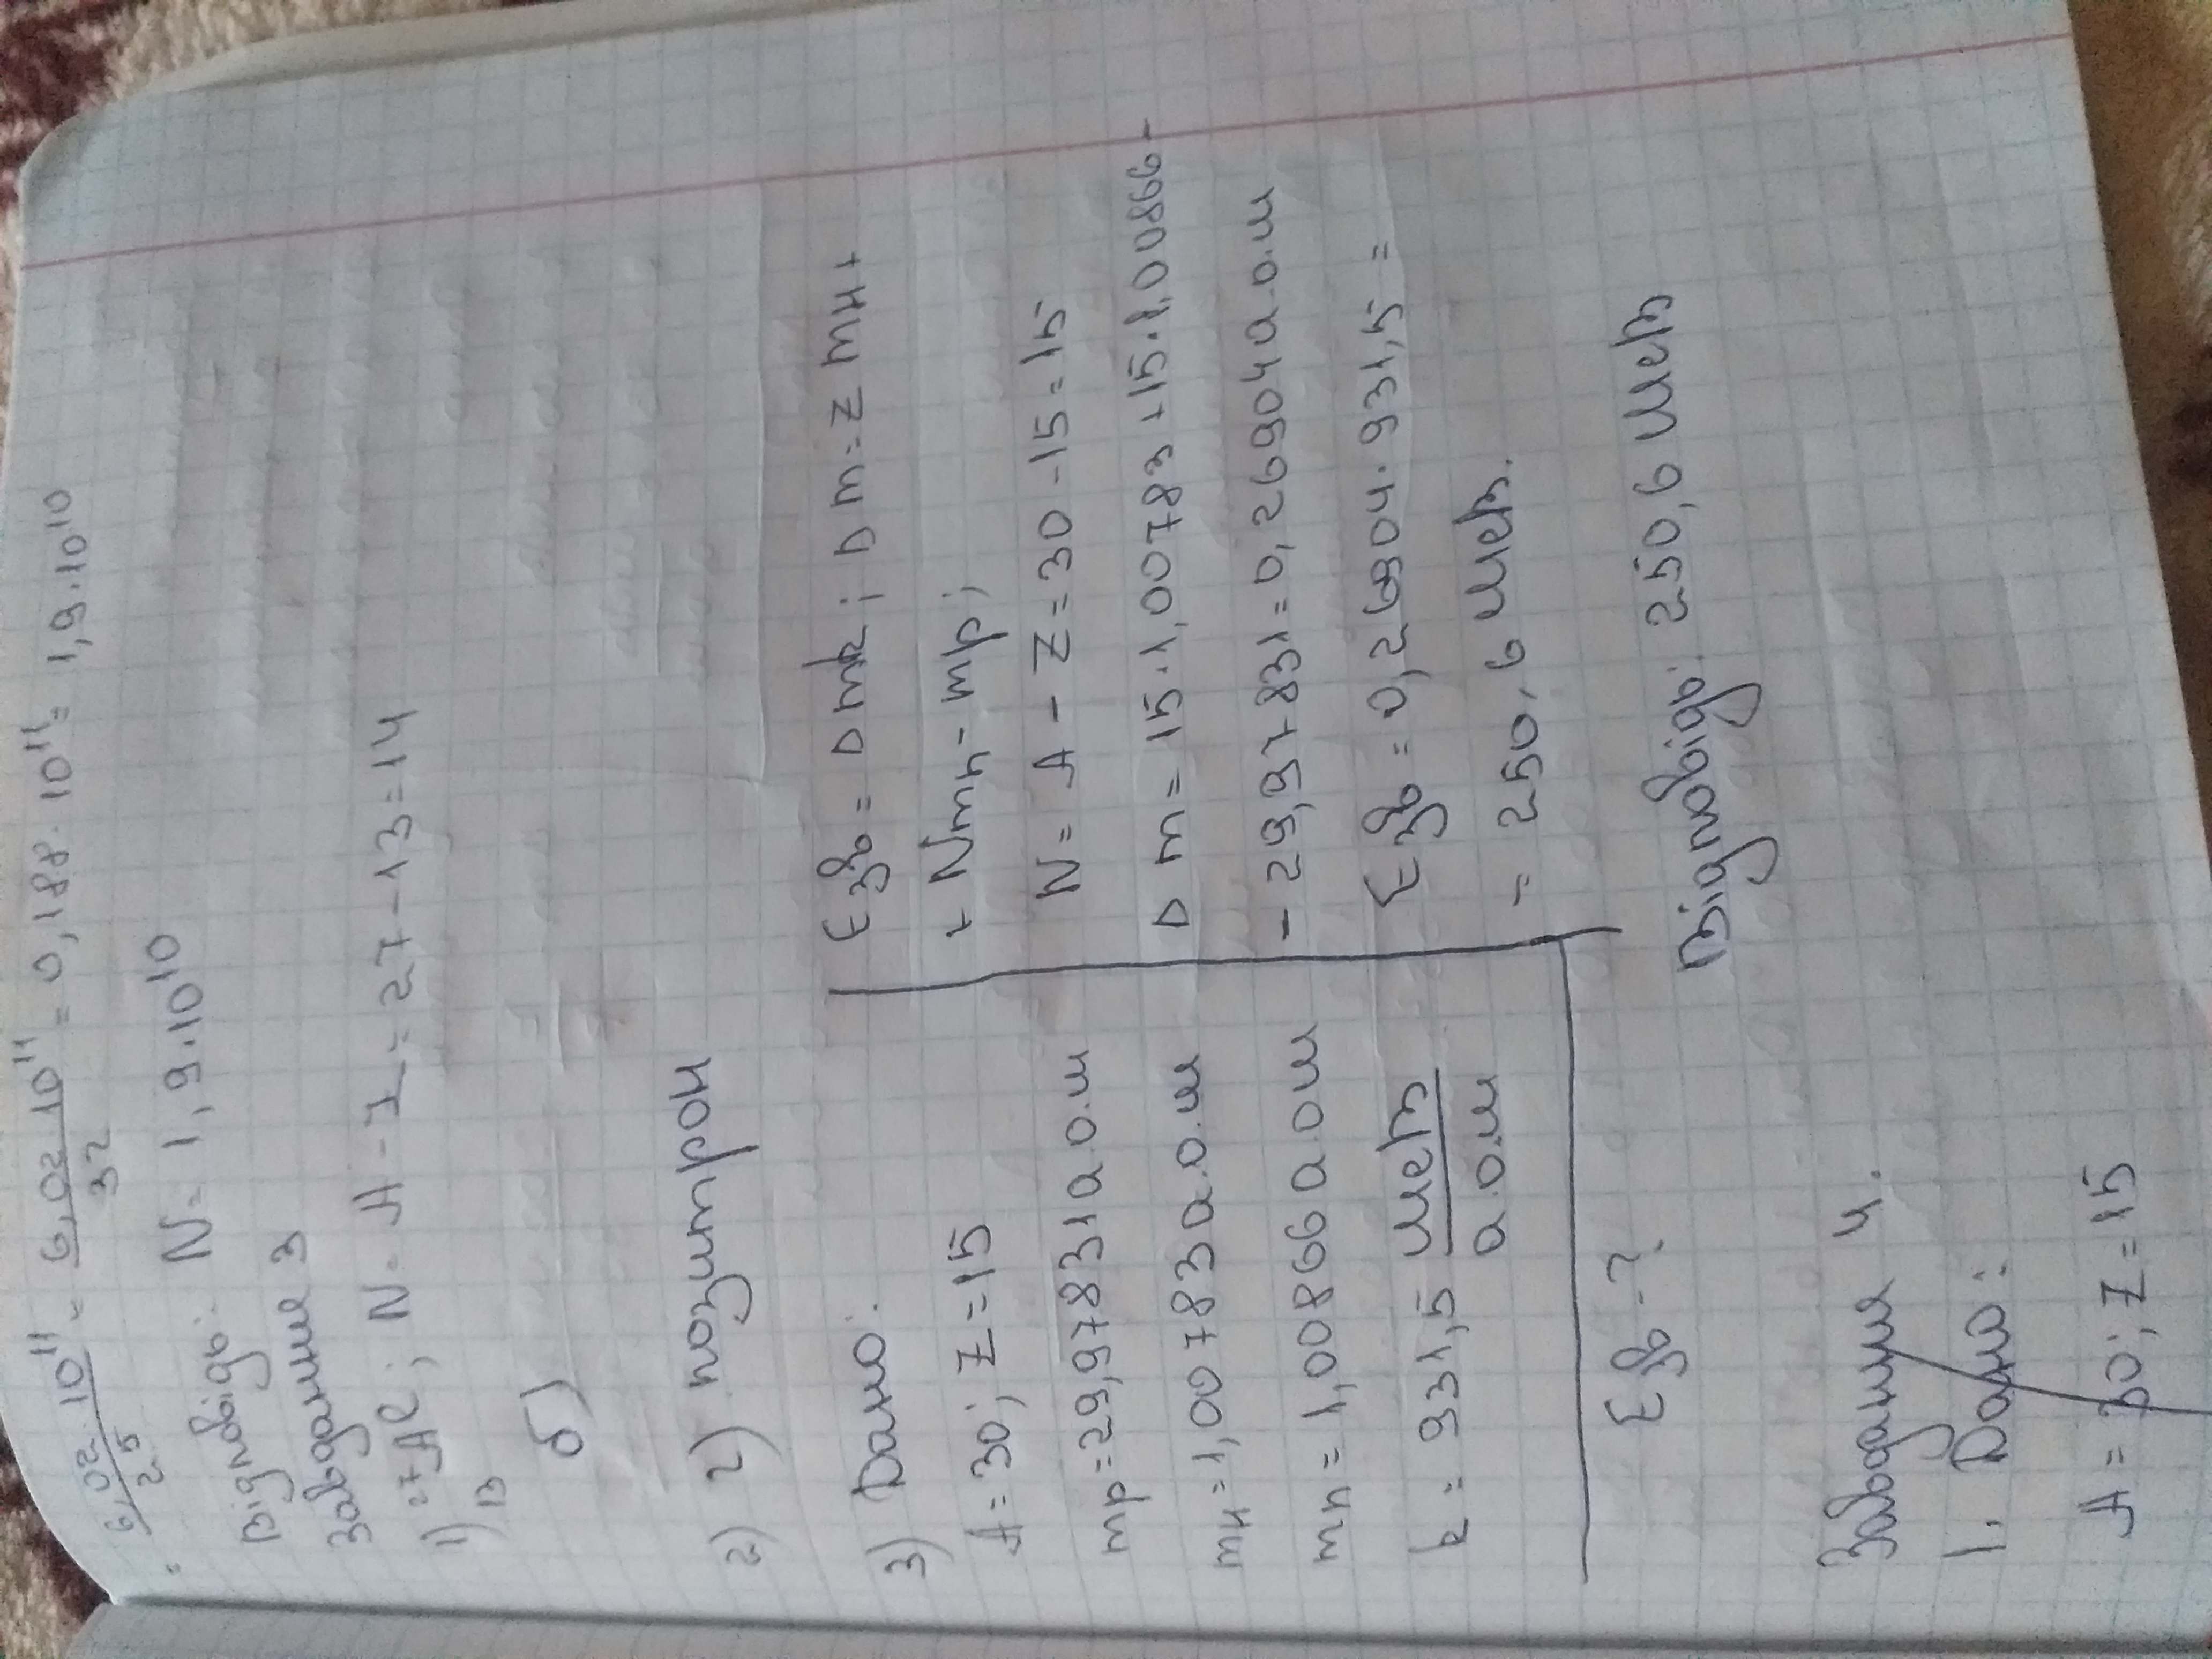 = 6,02·10¹¹/2⁵ = 6,02·10¹¹/32 = 0,188·10¹¹ = 1,9·10¹⁰
Відповідь: N = 1,9·10¹⁰
Завдання 3
1) ²⁷₁₃Al; N = A - Z = 27-13=14
б)
2) г) позитрон
3) Дано:
A = 30; Z = 15
mр = 29,97831 а.о.м
mн = 1,00783 а.о.м
mn = 1,00866 а.о.м
k = 931,5 МеВ/а.о.м
Eзв - ?
Eзв = Δmk; Δm = Z mн +
+ Nmn - mр;
N = A - Z = 30 - 15 = 15
Δm = 15·1,00783 + 15·1,00866 -
- 29,97831 = 0,26904 а.о.м
Eзв = 0,26904·931,5 =
= 250,6 МеВ.
Відповідь: 250,6 МеВ
Завдання 4.
1. Дано:
A = 30; Z = 15